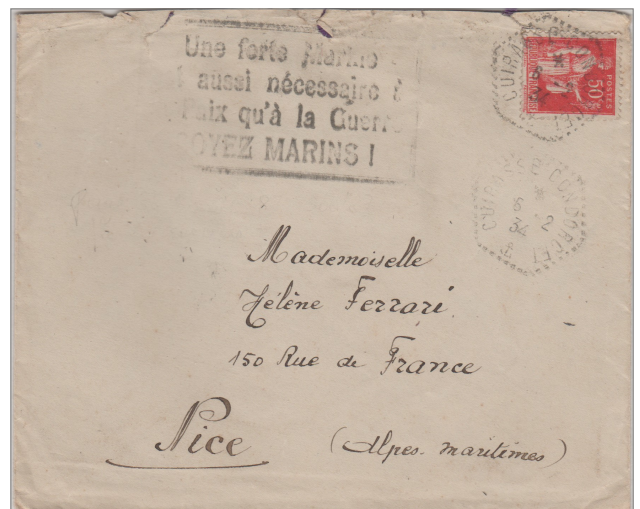 Une forte Marine
aussi nécessaire à
Paix qu'à la Guerre
OYEZ MARINS !
50c
POSTES
CUIRASSÉ
CUIRASSÉ CONDORCET
*
6 2
34
Mademoiselle
Hélène Ferrari
150 Rue de France
Nice (Alpes-maritimes)